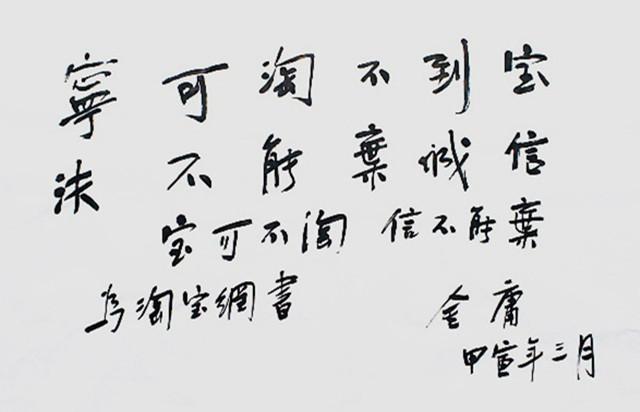 寧可淘不到宝
决不能棄誠信
宝可不淘 信不能棄
为淘宝網書 金庸
甲寅年三月